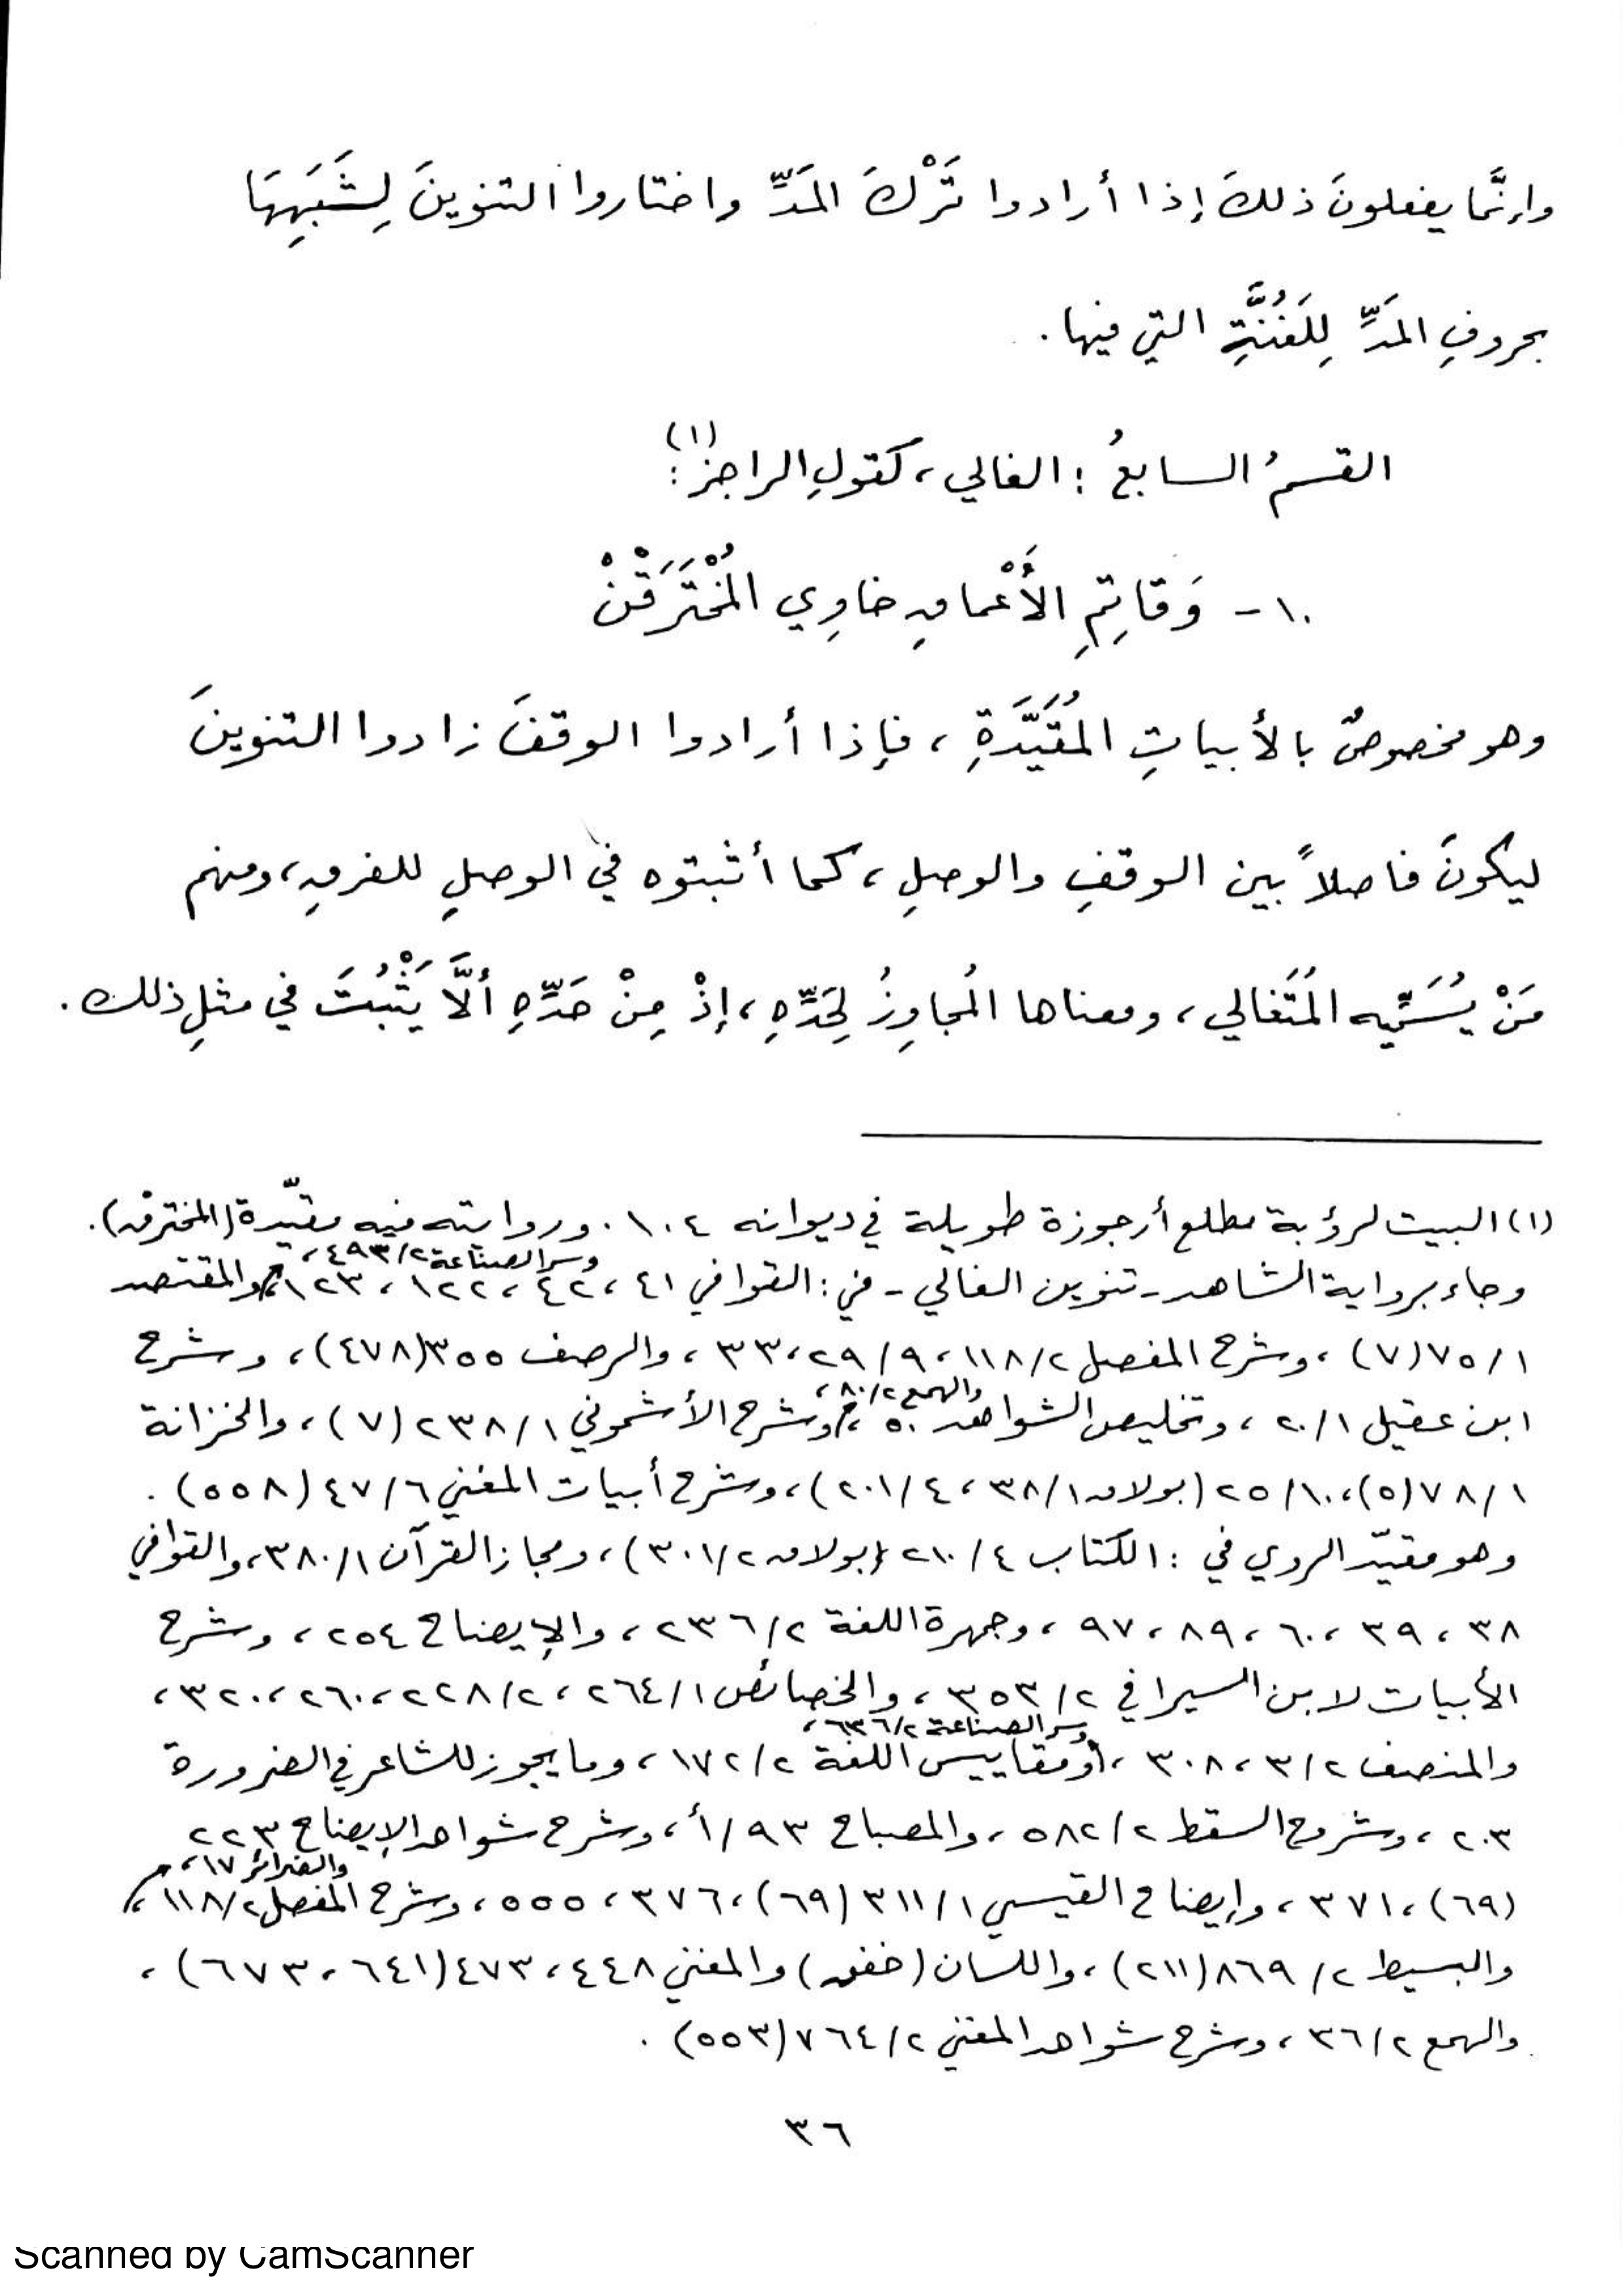 وإنَّما يفعلونَ ذلكَ إذا أرادوا تَرْكَ المَدِّ واختاروا التنوينَ لِشَبَهِهَا
بحروفِ المَدِّ لِلغُنَّةِ التي فيها .
القسمُ السابعُ : الغالي ، كقولِ الراجز(١) :
١٠ - وَقاتِمِ الأَعْماقِ خاوِي المُخْتَرَقْنْ
وهو مخصوصٌ بالأبياتِ المُقَيَّدَةِ ، فإذا أرادوا الوقفَ زادوا التنوينَ
ليكونَ فاصلاً بين الوقفِ والوصلِ ، كما أثبتوه في الوصلِ للفرقِ ، ومنهم
مَنْ يُسَمِّيه المُتَغالي ، ومعناها المُجاوِزُ لِحَدِّهِ ، إذْ مِنْ حَدِّهِ ألَّا يَثْبُتَ في مثلِ ذلك .
(١) البيت لرؤبة مطلع أرجوزة طويلة في ديوانه ١٠٤ . وروايته فيه مقيّدة (المخترقْ) .
وسر الصناعة ٤٩٣/٢ ،
وجاء برواية الشاهد - تنوين الغالي - في : القوافي ٤١ ، ٤٢ ، ١٢٢ ، ١٢٣ ، والمقتصد
٧٥/١ (٧) ، وشرح المفصل ١١٨/٢ ، ٢٩/٩ ، ٣٣ ، والرصف ٣٥٥ (٤٧٨) ، وشرح
والهمع ٨٠/٢ ،
ابن عقيل ٢٠/١ ، وتخليص الشواهد ٥٠ ، وشرح الأشموني ٢٣٨/١ (٧) ، والخزانة
٧٨/١ (٥) ، ٢٥/١٠ (بولاق ٣٨/١ ، ٢٠١/٤) ، وشرح أبيات المغني ٤٧/٦ (٥٥٨) .
وهو مقيّد الروي في : الكتاب ٢١٠/٤ (بولاق ٣٠١/٢) ، ومجاز القرآن ٣٨٠/١ ، والقوافي
٣٨ ، ٣٩ ، ٦٠ ، ٨٩ ، ٩٧ ، وجمهرة اللغة ٢٣٦/٢ ، والإيضاح ٢٥٤ ، وشرح
الأبيات لابن السيرافي ٣٥٣/٢ ، والخصائص ٢٦٤/١ ، ٢٢٨/٢ ، ٢٦٠ ، ٣٢٠ ،
وسر الصناعة ٦٣٦/٢ ،
والمنصف ٣/٢ ، ٣٠٨ ، ومقاييس اللغة ١٧٢/٢ ، وما يجوز للشاعر في الضرورة
٢٠٣ ، وشروح السقط ٥٨٢/٢ ، والمصباح ٩٣/أ ، وشرح شواهد الإيضاح ٢٢٣
والضرائر ١٧ ،
(٦٩) ، ٣٧١ ، وإيضاح القيسي ٣١١/١ (٦٩) ، ٣٧٦ ، ٥٥٥ ، وشرح المفصل ١١٨/٢ ،
والبسيط ٨٦٩/٢ (٢١١) ، واللسان (خفق) والمغني ٤٤٨ ، ٤٧٣ (٦٤١ ، ٦٧٣) ،
والهمع ٣٦/٢ ، وشرح شواهد المغني ٧٦٤/٢ (٥٥٣) .
٣٦
Scanned by CamScanner